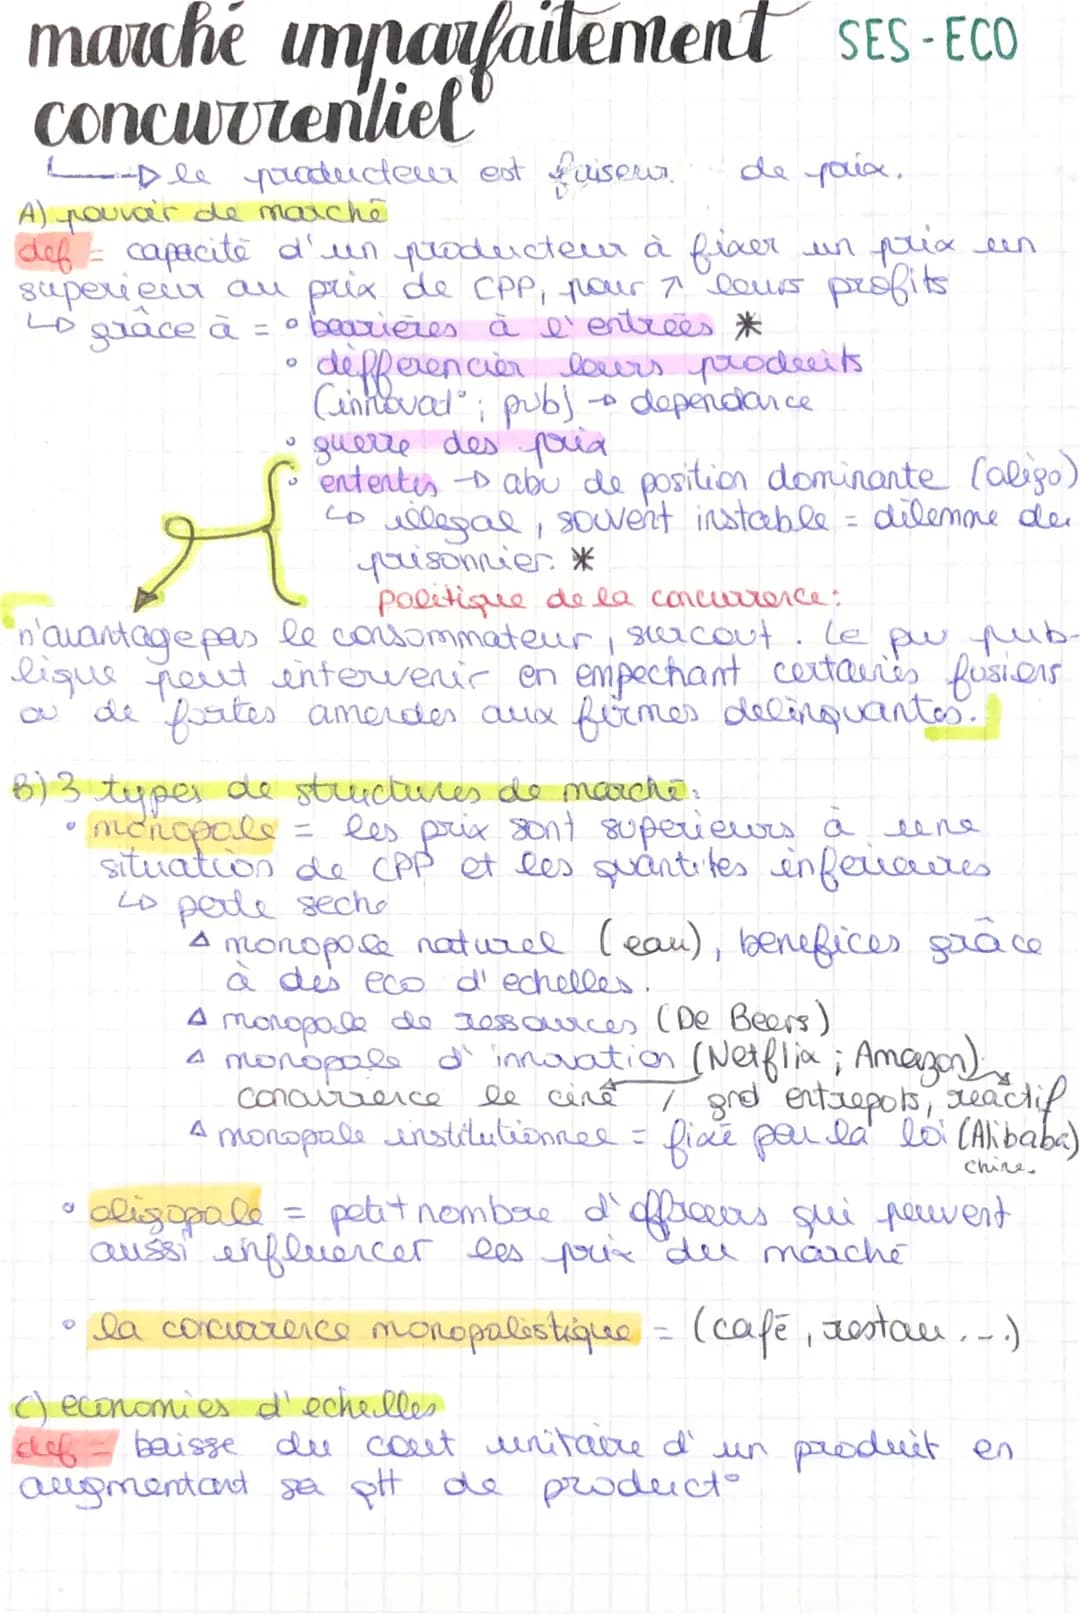 marché imparfaitement SES-ECO
concurrentiel
↳ le producteur est faiseur de prix.
A) pouvoir de marché
def = capacité d'un producteur à fixer un prix un
superieur au prix de CPP, pour ↗ leurs profits
↳ grâce à = ° barrières à l'entrées *
° différencier leurs produits
(innovat°; pub) → dependance
° guerre des prix
° ententes → abu de position dominante (aligo)
↳ illegal, souvent instable = dilemne du
prisonnier. *
politique de la concurrence:
n'avantage pas le consommateur, surcout. Le pv pub-
lique peut intervenir en empechant certaines fusions
ou de fortes amendes aux firmes delinquantes.
B) 3 types de structures de marché:
• monopole = les prix sont superieurs à une
situation de CPP et les quantites inferieures
↳ perte seche
Δ monopole naturel (eau), benefices grâce
à des eco d'echelles.
Δ monopole de ressources (De Beers)
Δ monopole d'innovation (Netflix; Amazon)
concurrence le ciné / grd entrepots, réactif
Δ monopole institutionnel = fixé par la loi (Alibaba)
chine.
° oligopole = petit nombre d'offreurs qui peuvent
aussi influencer les prix du marché
° la concurrence monopolistique = (café, restau...)
C) economies d'echelles
def = baisse du cout unitaire d'un produit en
augmentant sa qtt de product°